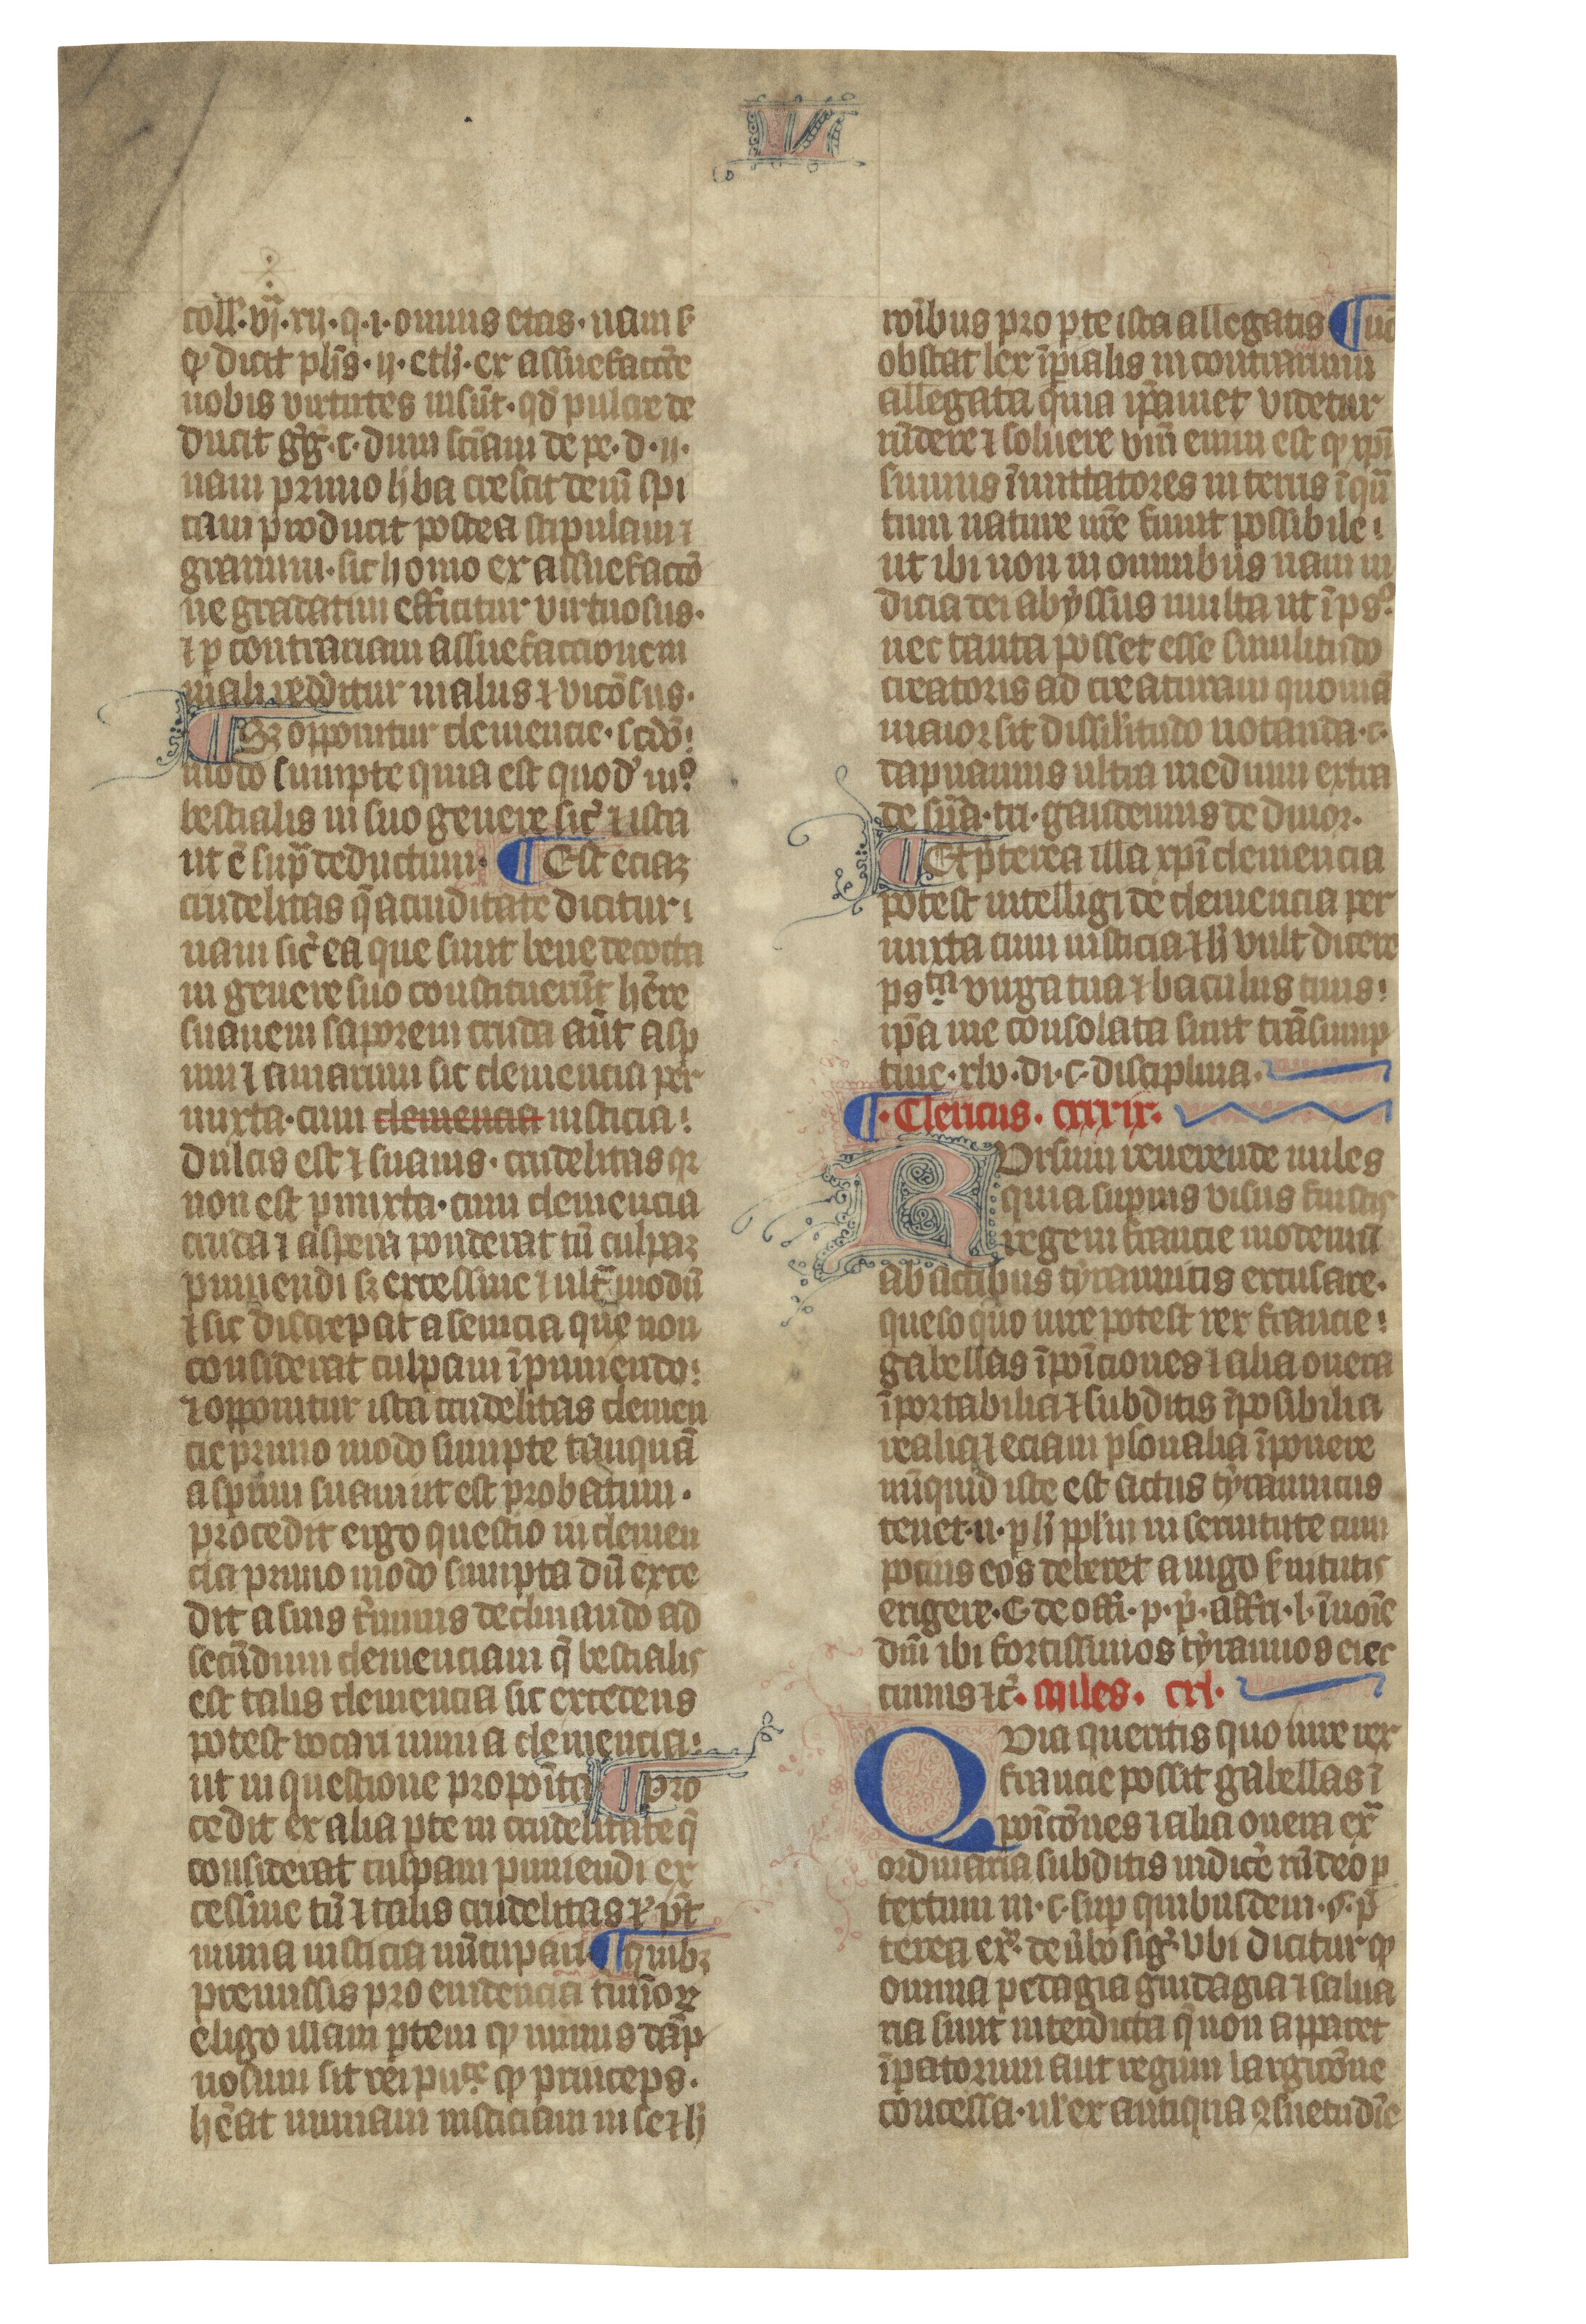 V
coll. vij. xij. q. i. omnis etas. nam s
ꝙ dicit phs. ij. ethj. ex assuefactiōe
nobis virtutes insūt. qd pulcre de
ducit g̃g. c. dum sc̃am de pe. d. ij.
nam primo h̄ba crescit deīn spi
cam producit postea stipulam ⁊
granum. sic homo ex assuefactō
ne gradatim efficitur virtuosus.
⁊ ꝑ contrariam assuefactionem
mali redditur malus ⁊ vicōsus.
¶ Sꝫ opponitur clemencie. scdō
modo sumpte quia est quod' mō
bestialis in suo genere sic̄ ⁊ ista
ut ē supͣ deductum. ¶ Est eciaꝫ
crudelitas q̄ a cruditate dicitur
nam sic̄ ea que sunt bene decocta
in genere suo constituerūt hēre
suauem saporem cruda aūt asꝑ
um ⁊ amarum sic clemencia per
mixta. cum clemencia iusticia
dulcis est ⁊ suauis. crudelitas qꝛ
non est ꝑmixta. cum clemencia
cruda ⁊ aspera ponderat tn̄ culpaꝫ
puniendi sꝫ excessiue ⁊ ultͣ modū
⁊ sic discrepat a seuicia que non
considerat culpam ī puniendo
⁊ opponitur ista crudelitas clemen
cie primo modo sumpte tanquā
asꝑum suaui ut est probatum.
procedit ergo questio in clemen
cia primo modo sumpta dū exce
dit a suis t̄minis declinando ad
secūdum clemenciam q̄ bestialis
est talis clemencia sic excedens
potest vocari nimia clemencia
ut in questione propoīta ¶ Pro
cedit ex alia ꝑte in crudelitate q̄
considerat culpam puniendi ex
cessiue tn̄ ⁊ talis crudelitas ⁊ pt̄
nimia iusticia nūcupari ¶ quibꝫ
premissis pro euidencia t̄minoꝝ
eligo illam ꝑtem ꝙ minus dāp
nosum sit rei puᶜᵉ ꝙ princeps.
hēat nimiam iusticiam in se ⁊ h̄
rōībus pro ꝑte ista allegatis ¶ nec
obstat lex īꝑialis in contrarium
allegata quia ip̄amet videtur
rn̄dere ⁊ soluere vm̄ enim est ꝙ xp̄i
sumus īmittatores in terris ī qn̄
tum nature nr̄e fuint possibile
ut ibi non in omnibus nam iu
dicia dei abyssus multa ut ī psº
nec tanta posset esse similitudo
creatoris ad creaturam quoniā
maior sit dissil̄itudo notanda. c.
dapnamus ultra medium extra
de sūa. tri. gaudemus de diuor.
¶ Et ꝑterea illa xp̄i clemencia
potest intelligi de clemencia per
mixta cum iusticia ⁊ h̄ vult dicere
psᵗᵃ virga tua ⁊ baculus tuus
ip̄a me consolata sunt trāsump
tiue. xlv. di. c. disciplina.
¶. Clericus. cxxxix.
Rursum reuerende miles
quia supius visus fuistis
regem francie modernū
ab actibus tyrannicis excusare.
queso quo iure potest rex francie
gabellas īpoīciones ⁊ alia onera
īportabilia ⁊ subditis īposibilia
realia ⁊ eciam ꝑsonalia īponere
nūquid iste est actus tyrannicus
tenet. n. ꝑ h̄ ppl'm in seruitute cum
pocius eos deberet a iugo s̄uitutis
erigere. C de offi. p. p̄. affri. l. ī noīe
dn̄i ibi fortissimos tyrannos eiec
cimus ⁊c̄. Miles. cxl.
Quia queritis quo iure rex
francie possit gabellas ī
poīcōnes ⁊ alia onera exͣ
ordinaria subditis indicē rn̄deo ꝑ
textum in. c. suꝑ quibusdem. §. p̄
terea exͣ. de ūbo sigͣ. Vbi dicitur ꝙ
omnia pedagia guidagia ⁊ salina
ria sunt interdicta q̄ non apparet
īꝑatorum aut regum largicōne
concessa. ul' ex antiqua ꝯsuetudīe